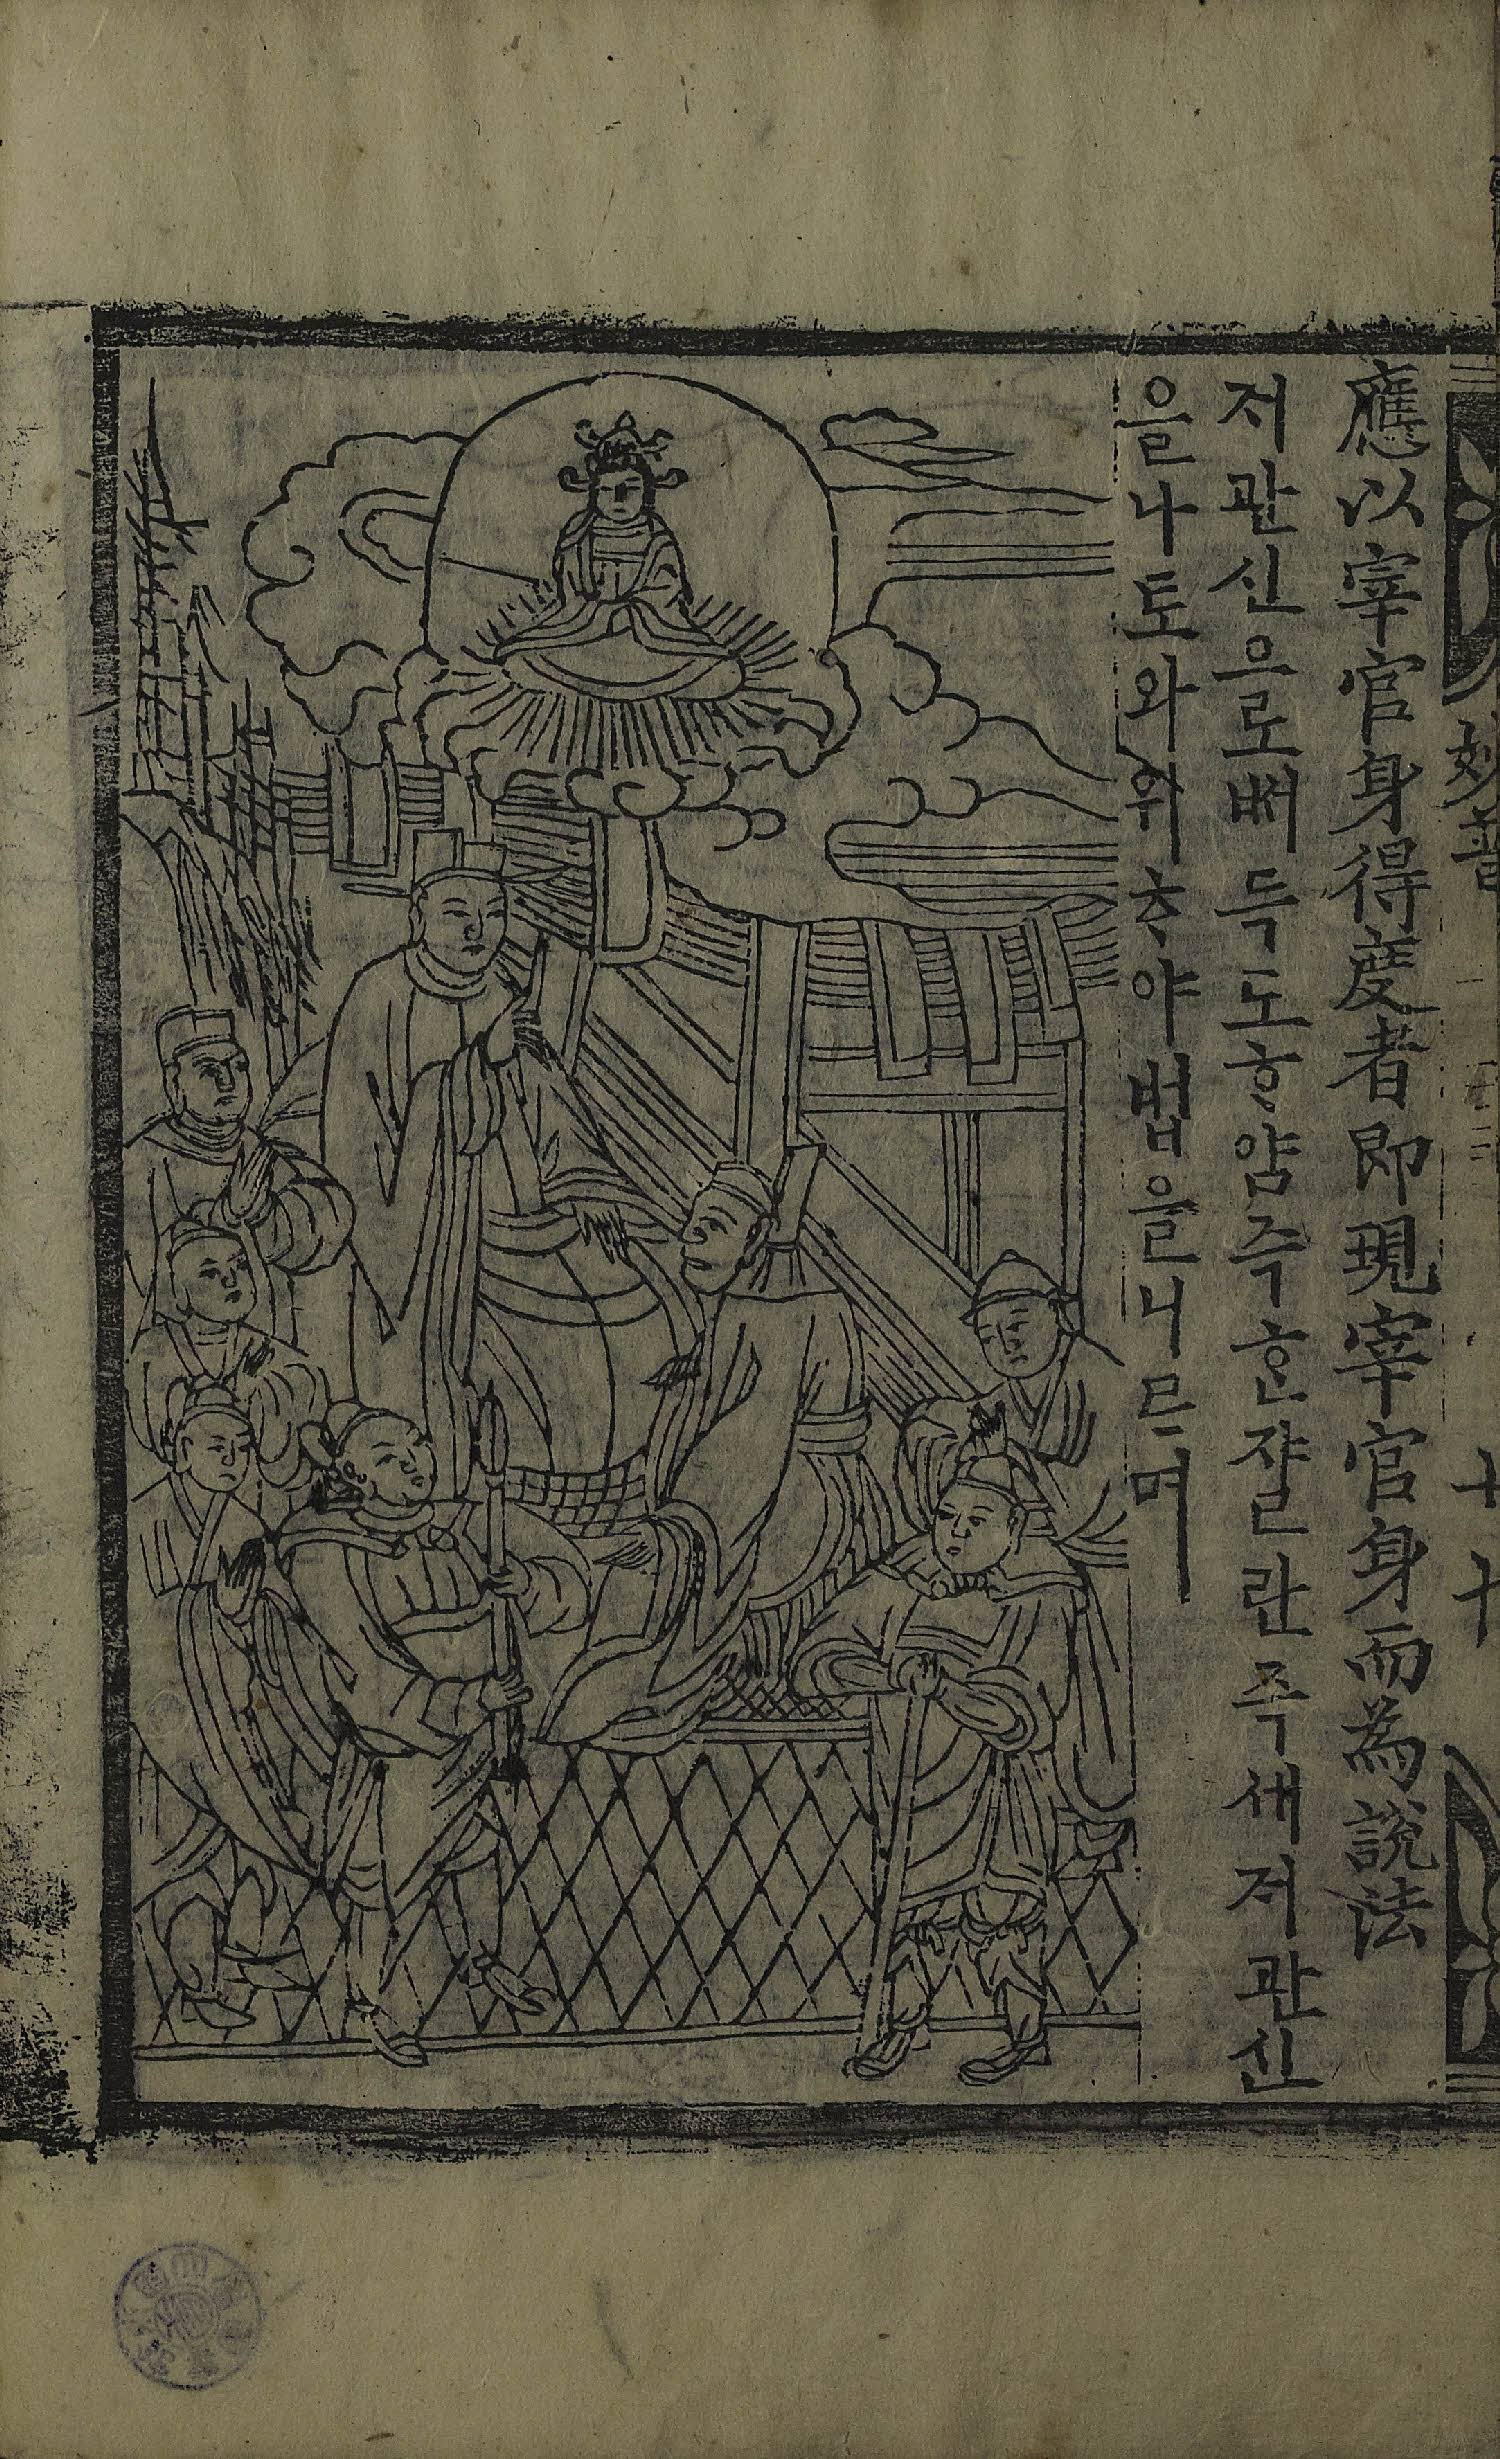 妙普
應以宰官身得度者即現宰官身而為說法
저관신으로ᄡᅥ득도ᄒᆞ얌즉ᄒᆞᆫ쟐란즉새저관신
을나토와위ᄒᆞ야법을니르며